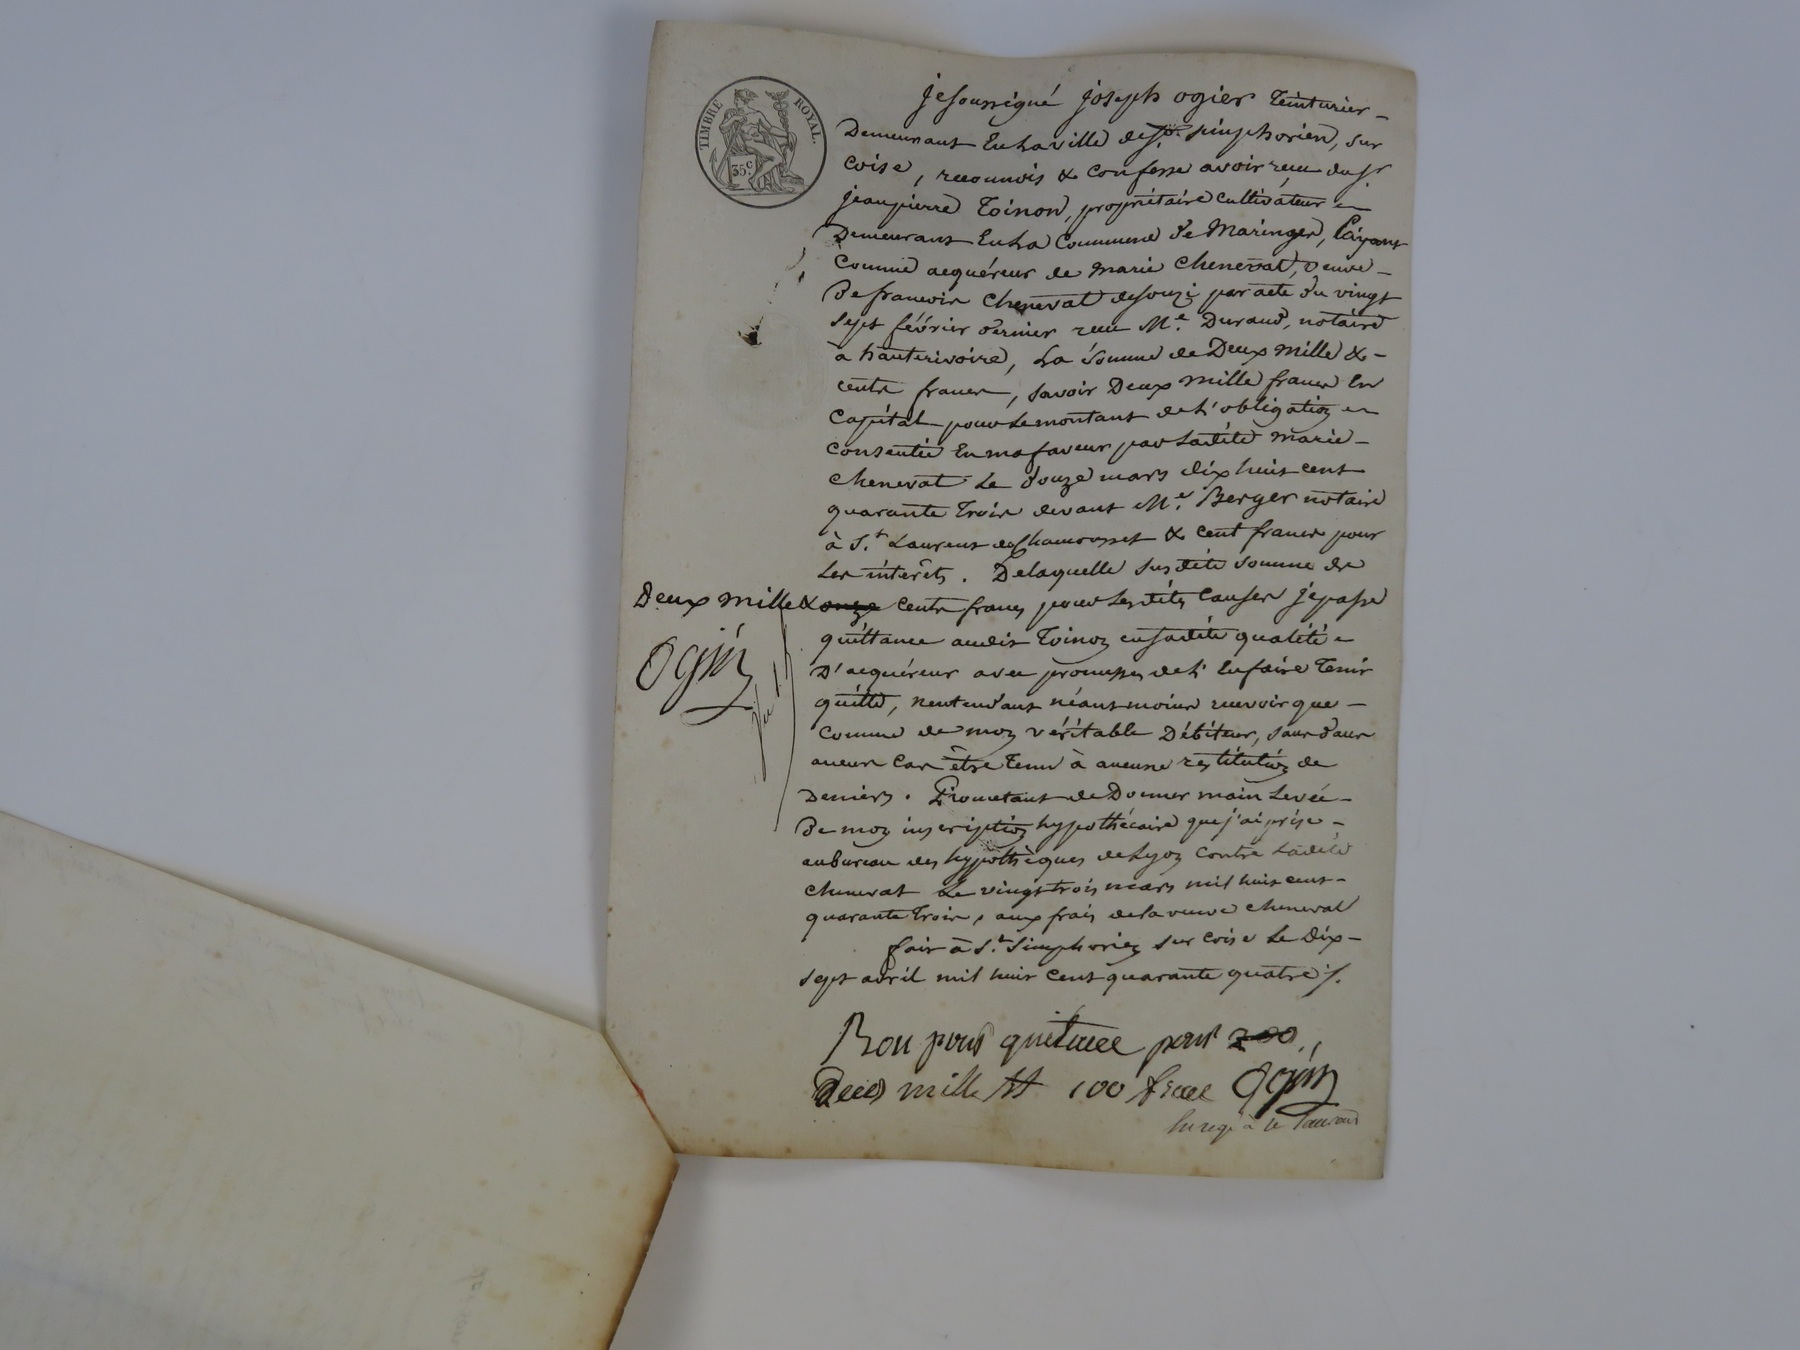 TIMBRE ROYAL.
35 c.
je soussigné joseph ogier Teinturier
Demeurant En La ville de St. simphorien, sur
coise, reconnois & confesse avoir reçu du sr
jean pierre Toinon, propriétaire cultivateur
Demeurant En La Commune de Maringes, payant
comme acquéreur de marie chenevat, veuve
De francois chenevat de souzi par acte du vingt
sept février dernier reçu Me. Durand, notaire
a hauterivoire, La somme de Deux mille &
cents francs, savoir Deux mille francs En
capital pour Le montant de L'obligation
consentie En ma faveur par Ladite marie
chenevat Le Douze mars dix huit cent
quarante Trois devant Me. Berger notaire
à St. Laurent de Chamousset & cent francs pour
Les intérêts. De laquelle susdite somme de
Deux mille & onze cents francs pour Lesdites causes je passe
quittance audit Toinon en sadite qualité
D'acquéreur avec promesses de L'En faire Tenir
quitte, n'entendant néantmoins recevoir que
comme de mon véritable Débiteur, sans dans
aucun cas être Tenu à aucune restitution de
Deniers. Promettant de Donner main Levée
De mon inscription hypothécaire que j'ai prise
au bureau des hypothèques de Lyon contre Ladite
chenevat Le vingt trois mars mil huit cent
quarante Trois, aux frais de la veuve chenevat
fait à St. Simphorien sur coise Le Dix
sept avril mil huit cent quarante quatre /.
Ogier
Bon pour quitance pour 200
Deux mille et 100 franc Ogier